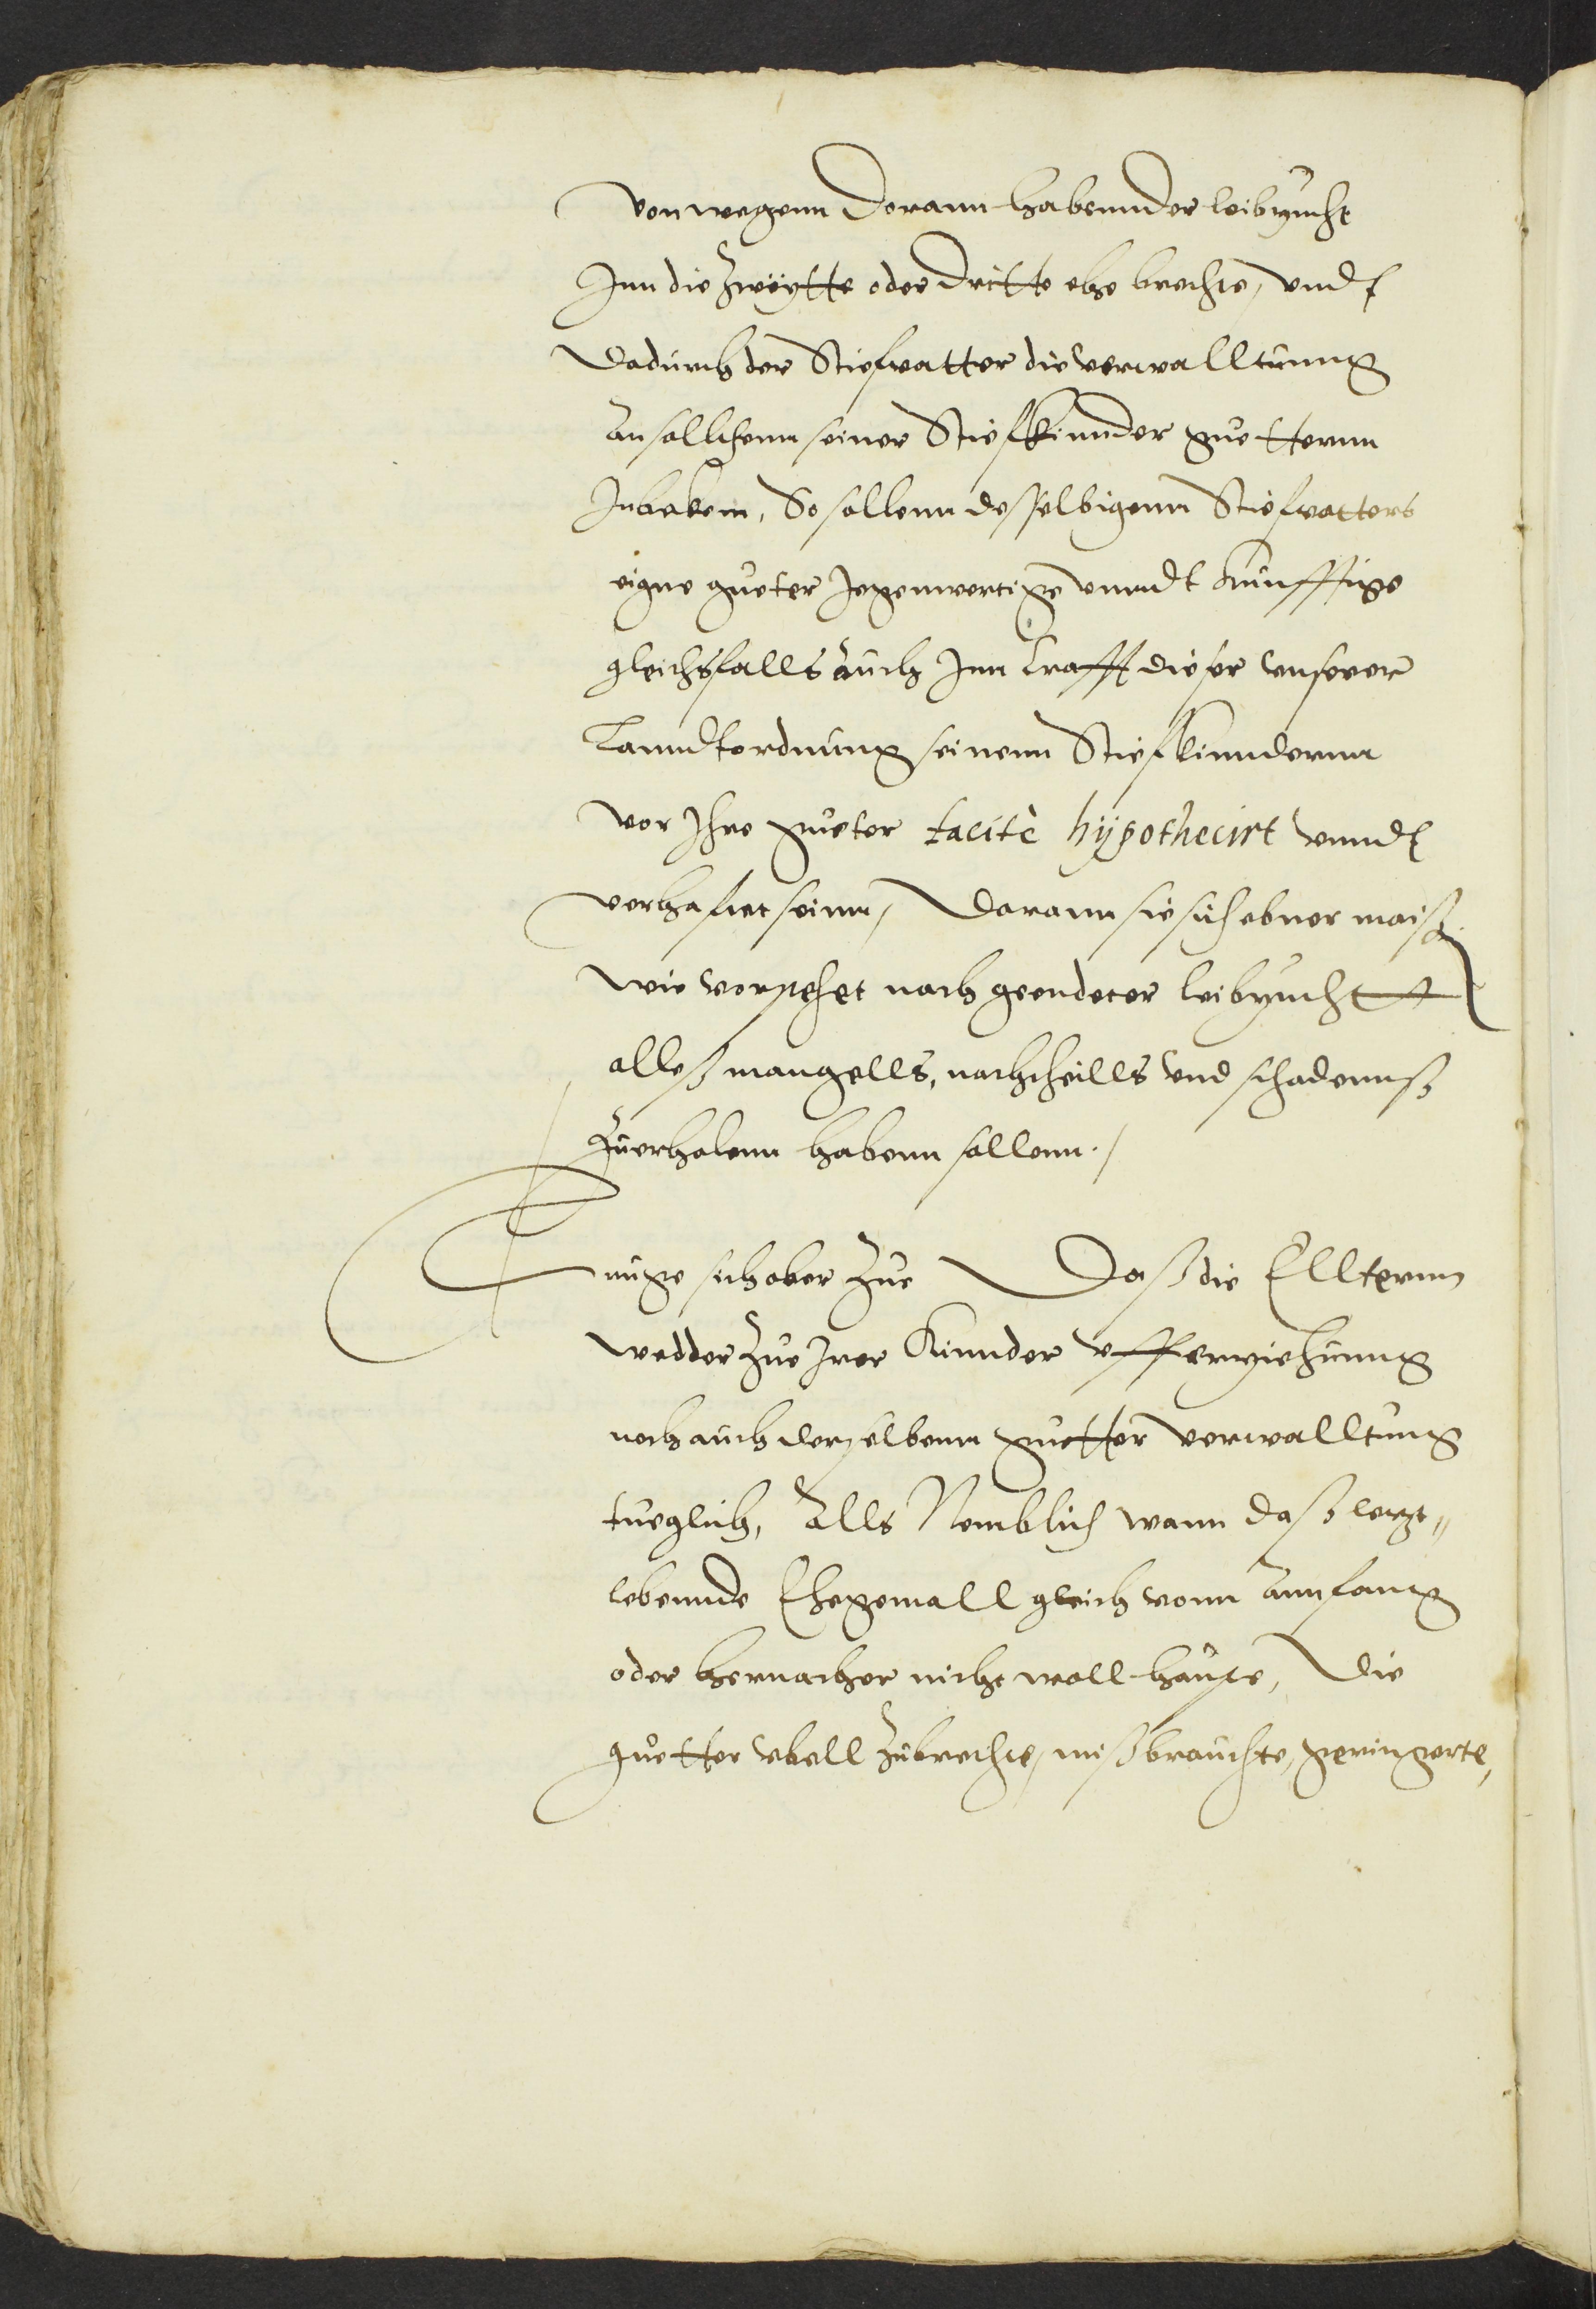 von wegenn darann habennder leibzucht
Inn die Zweytte oder dritte ehe brechte, undt
dadurch der Stiefvatter die verwalltunng
an sollchenn seiner Stiefkinnder guetternn
Inbekem, So sollenn desselbigenn Stiefvatters
eigne gueter Jegenwertige unndt kunfftige
gleichsfalls auch Inn Crafft dieser unserer
Lanndtordnung seinenn Stiefkinndernn
vor Ihre gueter tacitè hÿpothecirt unndt
verhafftet seinn, darann sie sich ebner maiß
wie vorstehet nach geendeter leibzucht
alleß mangells, nachtheills und schadennß
Zuerholenn habenn sollenn./
Truge sich aber Zue Daß die Ellternn
wedder Zue Irer Kinnder ufferziehunng
noch auch derselbenn guetter verwalltung
tueglich, Alls Nemblich wann daß letzt„
lebennde Ehegemall gleich vonn annfanng
oder hernacher nicht woll hauste, Die
guetter ubell Zubrechte, mißbrauchte, geringerte,